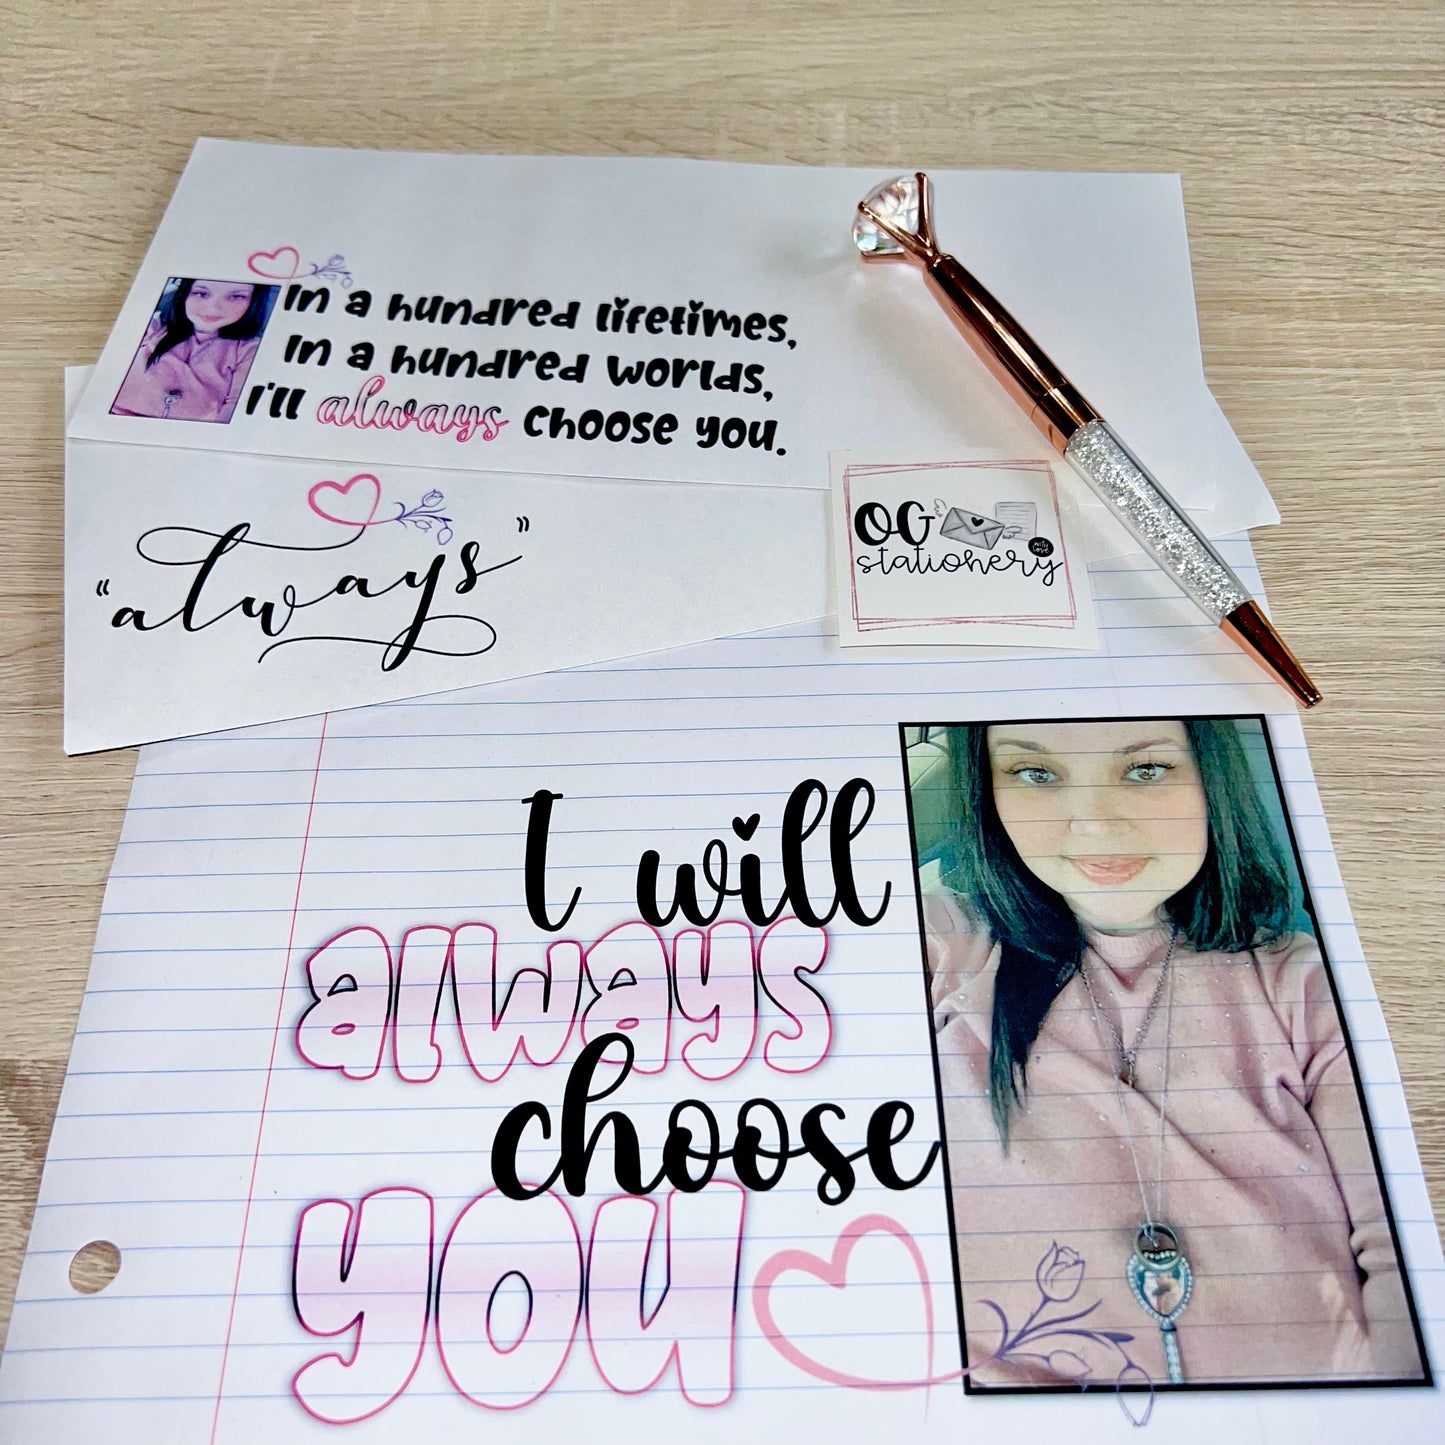 In a hundred lifetimes,
In a hundred worlds,
I'll always choose you.
"always"
OG
with love
stationery
I will
always
choose
you